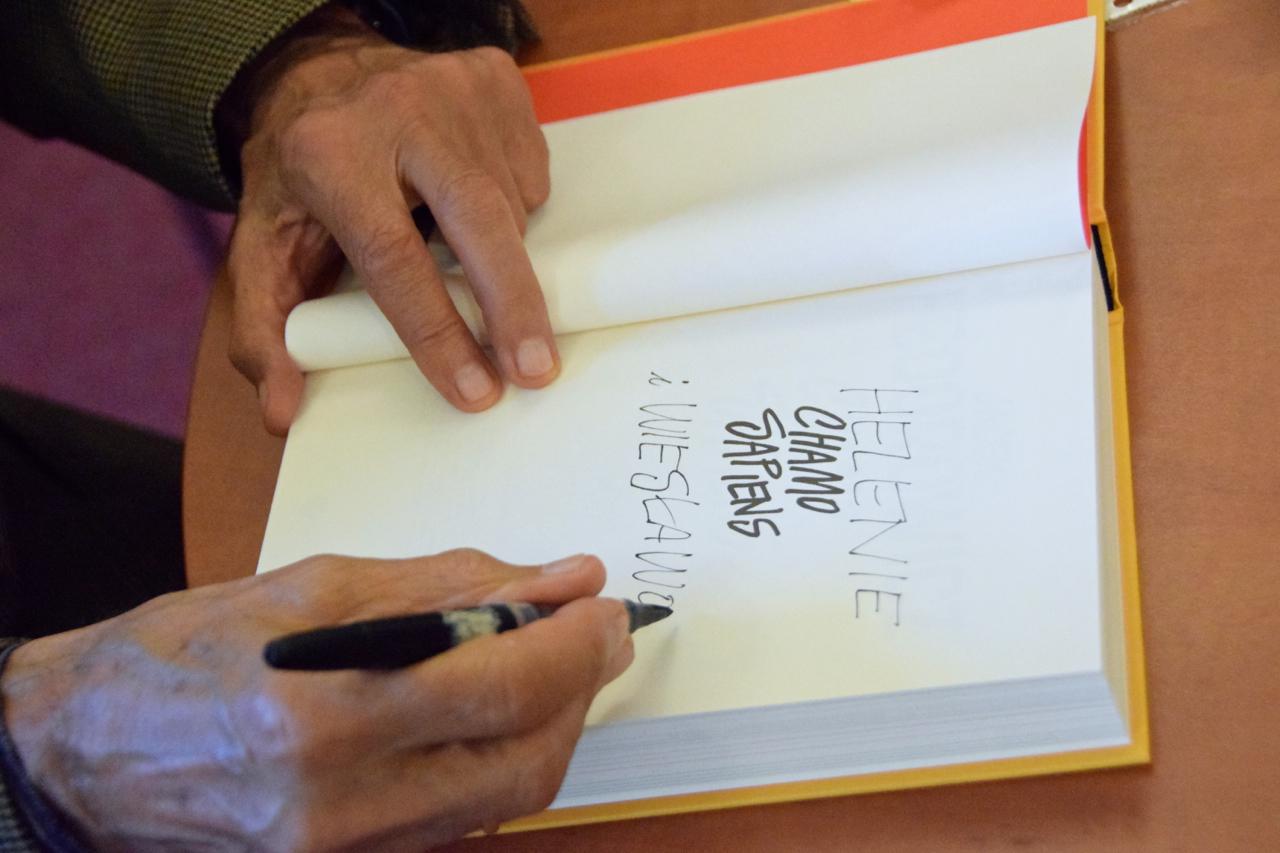 HELENIE
CHAMO
SAPIENS
i WIESŁAWo